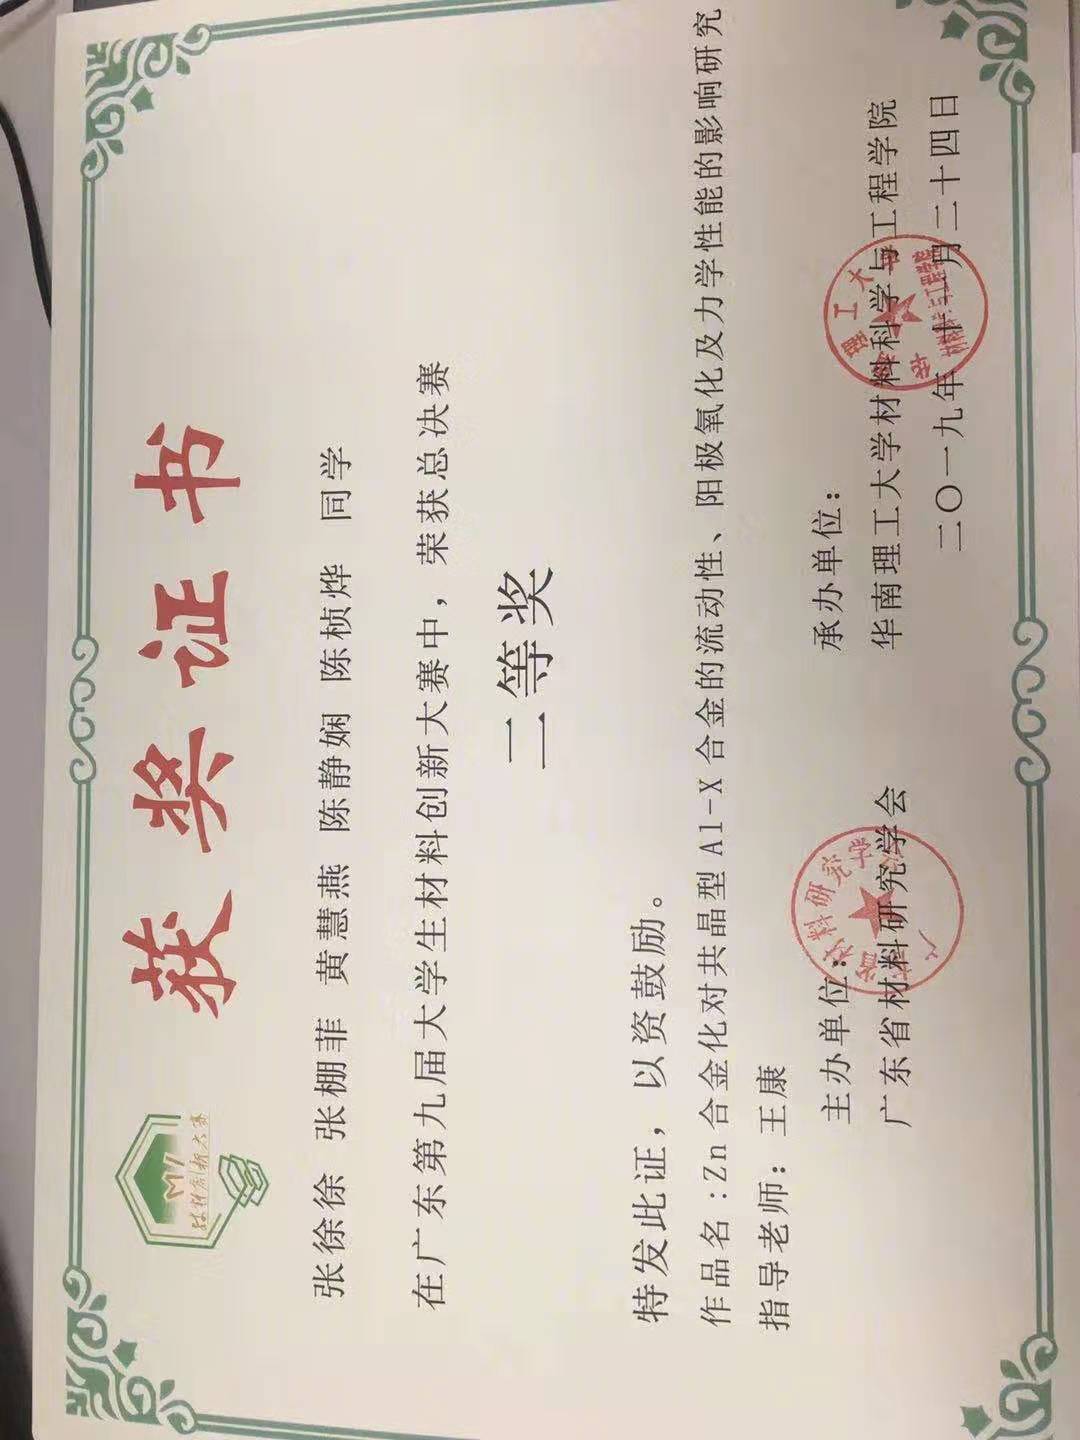 获奖证书
MI
材料创新大赛
张徐徐 张棚菲 黄慧燕 陈静娴 陈桢烨 同学
在广东第九届大学生材料创新大赛中，荣获总决赛
二等奖
特发此证，以资鼓励。
作品名：Zn合金化对共晶型Al-X合金的流动性、阳极氧化及力学性能的影响研究
指导老师：王康
主办单位：
广东省材料研究学会
承办单位：
华南理工大学材料科学与工程学院
二〇一九年十一月二十四日